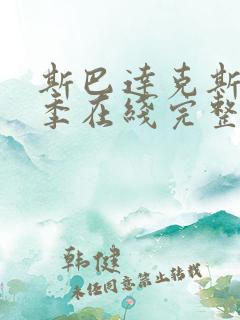 斯巴达克斯
季在线完整
韩健
未经同意禁止转载